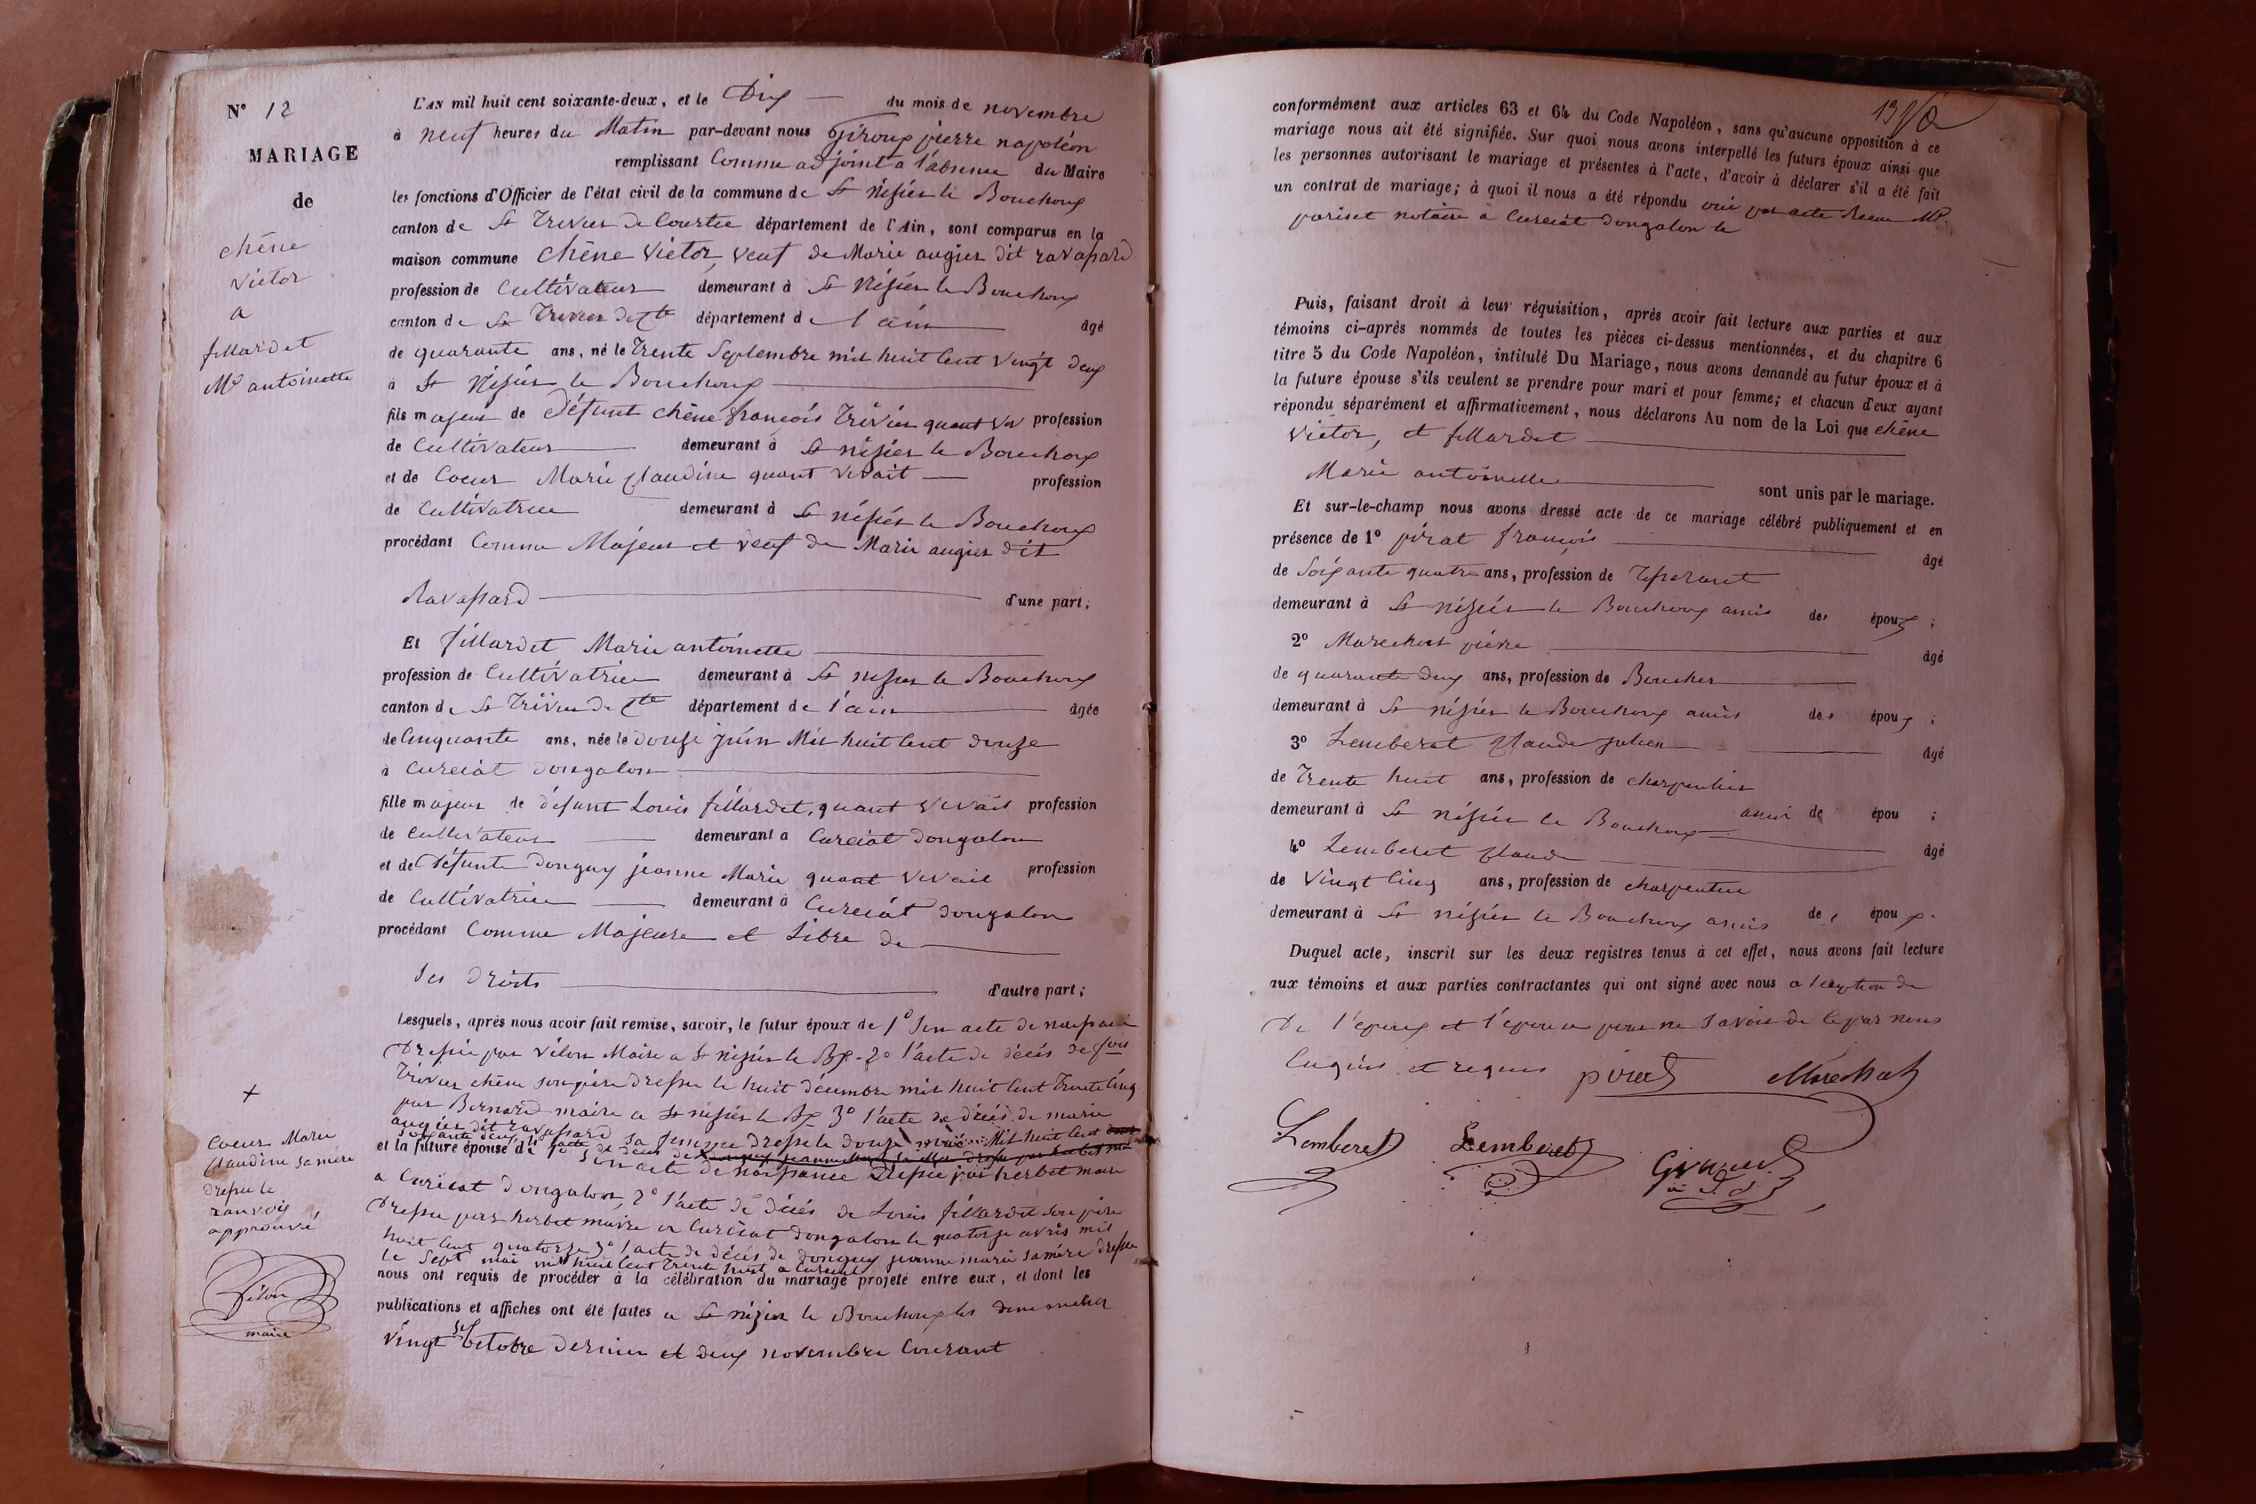 N° 12
MARIAGE
de
chêne
victor
a
fillardet
Mie antoinette
L'AN mil huit cent soixante-deux, et le Dix du mois de novembre
à neuf heures du Matin par-devant nous Giroux pierre napoléon
remplissant Comme adjoint a l'absence du Maire
les fonctions d'Officier de l'état civil de la commune de St Nisier le Bouchoux
canton de St Trivier de Courtes département de l'Ain, sont comparus en la
maison commune chêne victor, veuf de Marie augier dit ravassard
profession de Cultivateur demeurant à St Nisier le Bouchoux
canton de St Trivier de Ctes département de l'ain âgé
de quarante ans, né le Trente Septembre mil huit Cent vingt deux
à St Nisier le Bouchoux
fils majeur de défunt chêne françois Trivier quant vi profession
de Cultivateur demeurant à St nisier le Bouchoux
et de Coeur Marie Claudine quant vivait profession
de Cultivatrice demeurant à St nisier le Bouchoux
procédant Comme Majeur et veuf de Marie augier dit
Ravassard d'une part;
Et fillardet Marie antoinette
profession de Cultivatrice demeurant à St nisier le Bouchoux
canton de St Trivier de Cte département de l'ain âgée
de Cinquante ans, née le douze juin Mil huit Cent douze
à Curciat dongalon
fille majeur de défunt Louis fillardet, quant vivait profession
de Cultivateur demeurant a Curciat dongalon
et de Défunte donguy jeanne Marie quant vivait profession
de Cultivatrice demeurant à Curciat dongalon
procédant Comme Majeure et Libre de
Ses droits d'autre part;
Lesquels, après nous avoir fait remise, savoir, le futur époux de 1° Son acte de naissance
Dressée par vélon Maire a St nisier le Bx - 2° l'acte de décés de fois
Trivier chêne son père dressée le huit décembre mil huit Cent Trente Cinq
par Bernard maire a St nisier le Bx 3° l'acte de décés de marie
augier dit ravassard sa femme dressée le douze Mil huit Cent
soixante deux 4° l'acte de décès de
et la future épouse de 1° Son acte de naissance Dressée par herbet maire
a Curciat dongalon, 2° l'acte de décés de Louis fillardet son père
Dressée par herbet maire a Curciat dongalon le quatorze avril mil
huit Cent quatorze 3° l'acte de décés de donguy jeanne marie sa mère dressée
le Sept mai mil huit Cent Trente huit a Curciat
nous ont requis de procéder à la célébration du mariage projeté entre eux, et dont les
publications et affiches ont été faites a St nizier le Bouchoux les dimanches
vingt six octobre dernier et deux novembre Courant
+
Coeur Marie
Claudine sa mère
dressée le
ranvois
approuvé
vélon
maire
13
conformément aux articles 63 et 64 du Code Napoléon, sans qu'aucune opposition à ce
mariage nous ait été signifiée. Sur quoi nous avons interpellé les futurs époux ainsi que
les personnes autorisant le mariage et présentes à l'acte, d'avoir à déclarer s'il a été fait
un contrat de mariage; à quoi il nous a été répondu oui par acte Recu Me
pariset notaire à Curciat dongalon le
Puis, faisant droit à leur réquisition, après avoir fait lecture aux parties et aux
témoins ci-après nommés de toutes les pièces ci-dessus mentionnées, et du chapitre 6
titre 5 du Code Napoléon, intitulé Du Mariage, nous avons demandé au futur époux et à
la future épouse s'ils veulent se prendre pour mari et pour femme; et chacun d'eux ayant
répondu séparément et affirmativement, nous déclarons Au nom de la Loi que chêne
victor, et fillardet
Marie antoinette sont unis par le mariage.
Et sur-le-champ nous avons dressé acte de ce mariage célébré publiquement et en
présence de 1° pirat françois âgé
de Soixante quatre ans, profession de Tisserant
demeurant à St nisier le Bouchoux amis des époux;
2° Marechat pierre âgé
de quarante deux ans, profession de Boucher
demeurant à St nisier le Bouchoux amis des époux;
3° Lemberet Claude julien âgé
de Trente huit ans, profession de charpentier
demeurant à St nisier le Bouchoux amis de épou;
4° Lemberet Claude âgé
de vingt Cinq ans, profession de charpentier
demeurant à St nisier le Bouchoux amis des époux.
Duquel acte, inscrit sur les deux registres tenus à cet effet, nous avons fait lecture
aux témoins et aux parties contractantes qui ont signé avec nous a l'exeption de
De l'epoux et l'epouse pour ne Savoir de Ce par nous
Enquis et requis pirat Marechat
Lemberet Lemberet Giroux